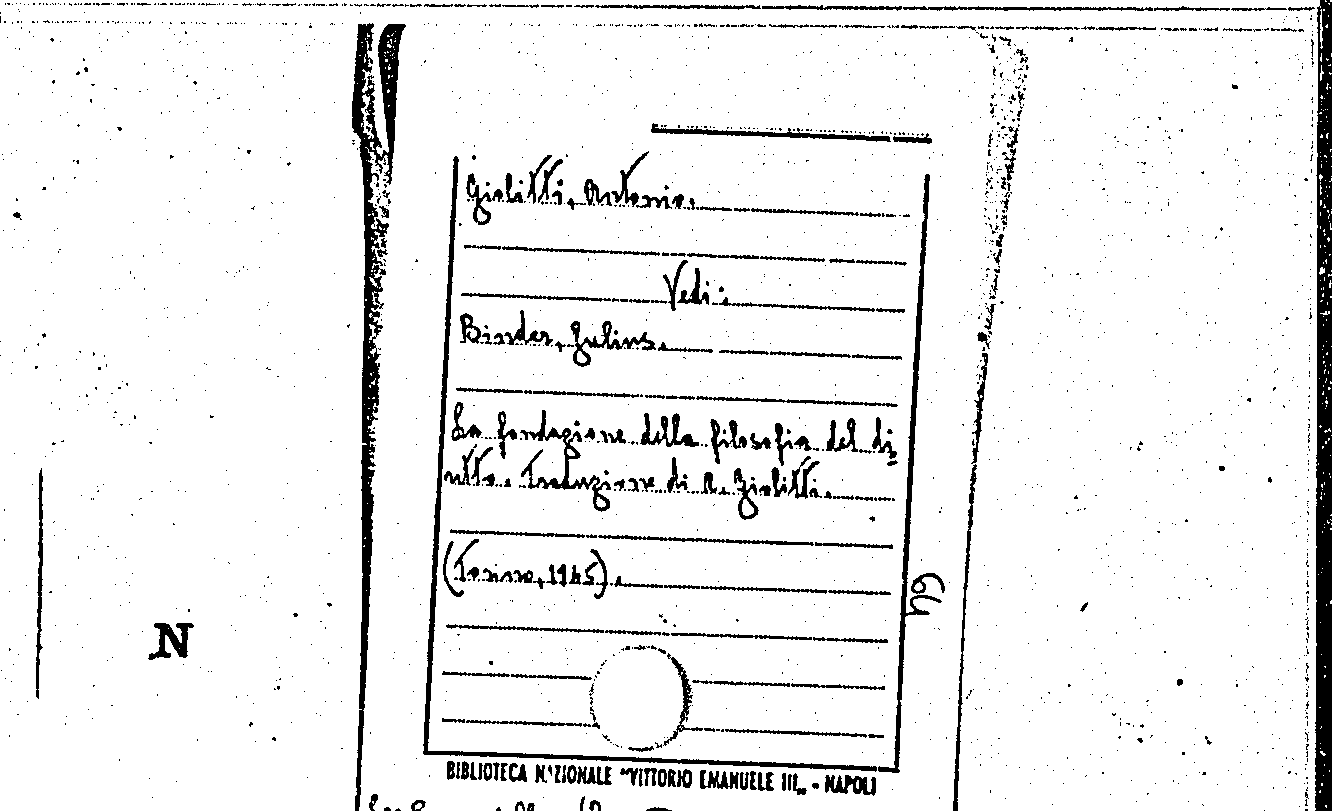 Giolitti, Antonio.
Vedi:
Binder, Julius.
La fondazione della filosofia del di=
ritto. Traduzione di A. Giolitti.
(Torino, 1945).
64
N
BIBLIOTECA NAZIONALE "VITTORIO EMANUELE III„ - NAPOLI